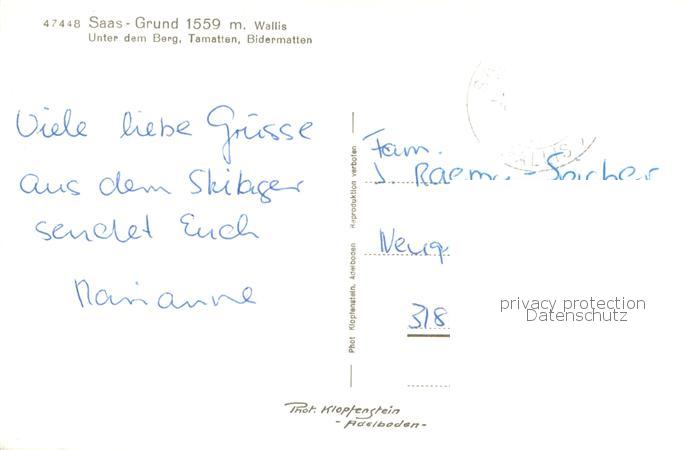 47448 Saas-Grund 1559 m. Wallis
Unter dem Berg, Tamatten, Bidermatten
Viele liebe Grüsse
aus dem Skilager
sendet Euch
Marianne
Reproduktion verboten
Phot Klopfenstein, Adelboden
Fam.
J.
318
privacy protection
Datenschutz
Phot. Klopfenstein
- Adelboden -